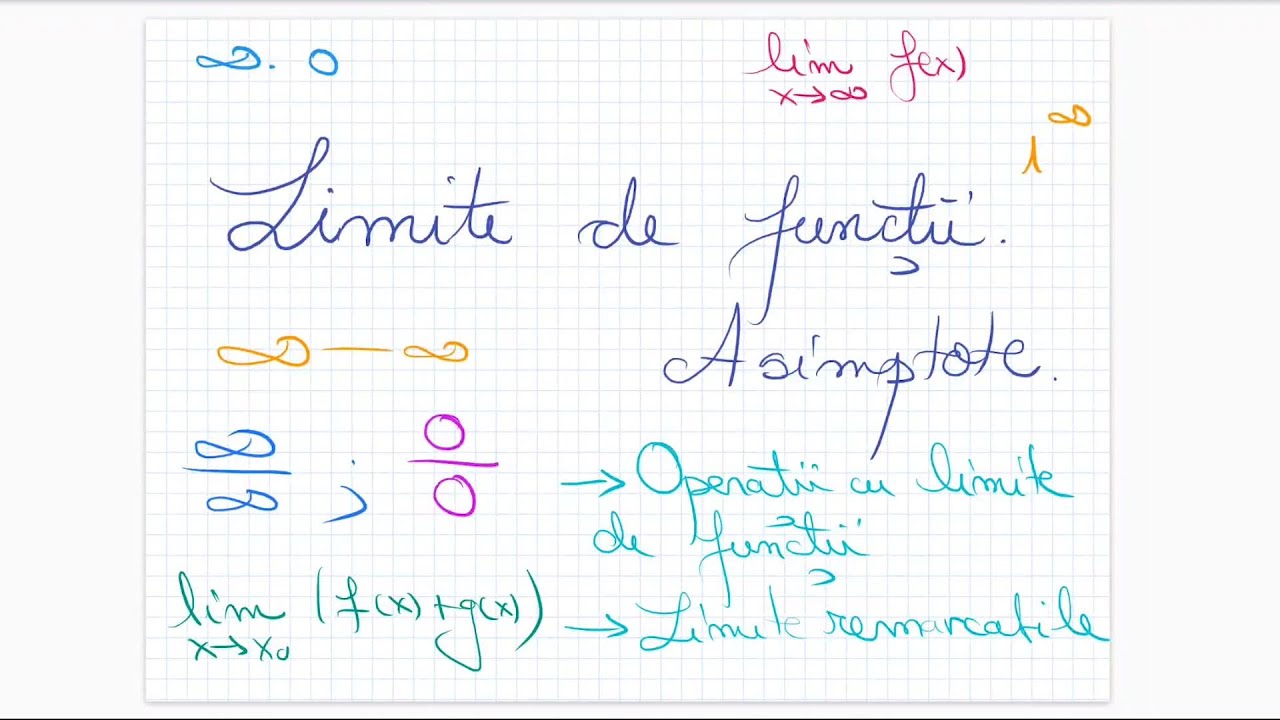 ∞ · 0
lim f(x)
x→∞
1^∞
Limite de funcții.
∞ — ∞
Asimptote.
∞/∞ ; 0/0
→ Operații cu limite
de funcții
lim (f(x)+g(x))
x→x₀
→ Limite remarcabile